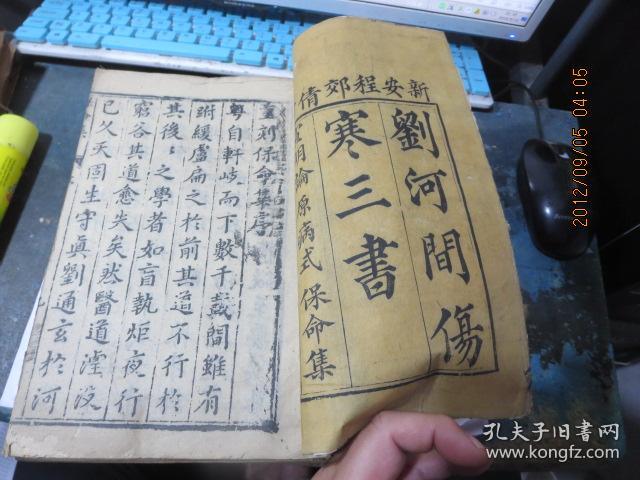 新安程郊倩
劉河間傷
寒三書
宣明論原病式保命集
重刻保命集序
粵自軒岐而下數千載間雖有
跗緩盧扁之於前其道不行於
其後〻之學者如盲執炬夜行
窮谷其道愈失矣然醫道湮没
已久天固生守真劉通玄於河
2012/09/05 04:05
孔夫子旧书网
www.kongfz.com